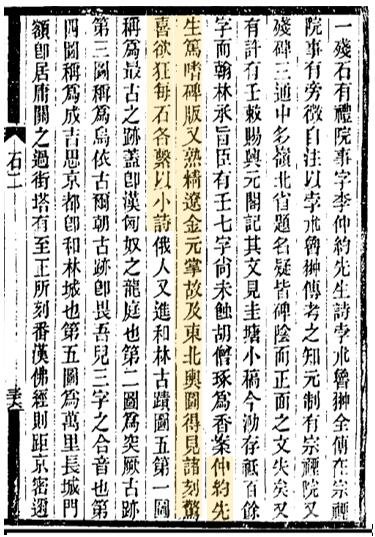 一殘石有禮院事字李仲約先生詩孛朮魯翀全傳在宗禋
院事有旁徵自注以孛朮魯翀傳考之知元制有宗禋院又
殘碑三通中多嶺北省題名疑皆碑陰而正面之文失矣又
有許有壬敕賜興元閣記其文見圭塘小稿今泐存祗百餘
字而翰林承旨臣有壬七字尙未蝕胡僧琢爲香案仲約先
生篤嗜碑版又熟精遼金元掌故及東北輿圖得見諸刻驚
喜欲狂每石各繫以小詩俄人又進和林古蹟圖五第一圖
稱爲最古之跡蓋卽漢匈奴之龍庭也第二圖爲突厥古跡
第三圖稱爲烏依古爾朝古跡卽畏吾兒三字之合音也第
四圖稱爲成吉思京都卽和林城也第五圖爲萬里長城門
額卽居庸關之過街塔有至正所刻番漢佛經則距京密邇
石二